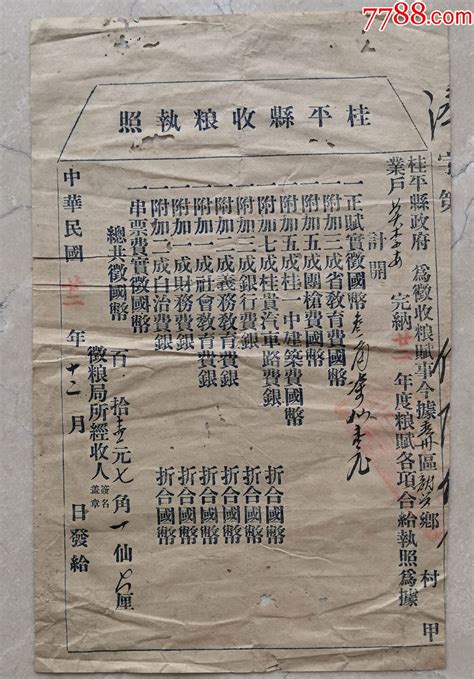 7788.com
桂平縣收粮執照
桂平縣政府 為徵收粮賦事今據 區 鄉 村 甲
業戶 完納 廿二 年度粮賦各項合給執照為據
計開
一正賦實徵國幣
一附加三成省教育費國幣
一附加五成團槍費國幣
一附加五成桂一中建築費國幣 折合國幣
一附加七成桂貴汽車路費銀 折合國幣
一附加三成銀行費銀 折合國幣
一附加二成義務教育費銀 折合國幣
一附加一成社會教育費銀 折合國幣
一附加一成財務費銀 折合國幣
一附加二成自治費銀 折合國幣
一串票費實徵國幣
總共徵國幣 百 拾 元七角一仙 厘
徵粮局所經收人 簽名蓋章
中華民國 廿二 年 十二 月 日發給
字第